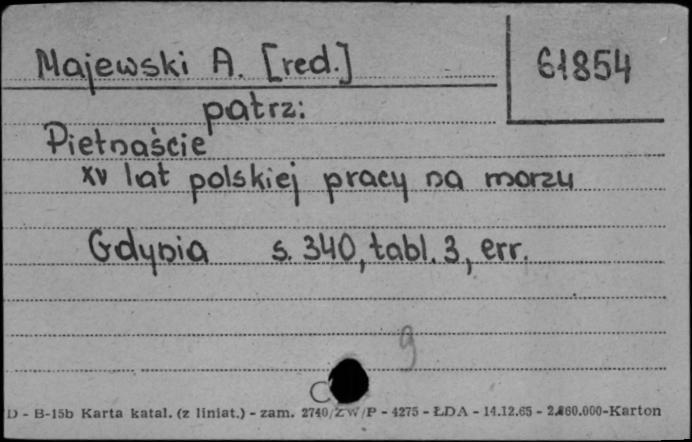 Majewski A. [red.]
61854
patrz:
Piętnaście
XV lat polskiej pracy na morzu
Gdynia s. 340, tabl. 3, err.
9
D - B-15b Karta katal. (z liniat.) - zam. 2740/ZW/P - 4275 - ŁDA - 14.12.65 - 2.860.000-Karton